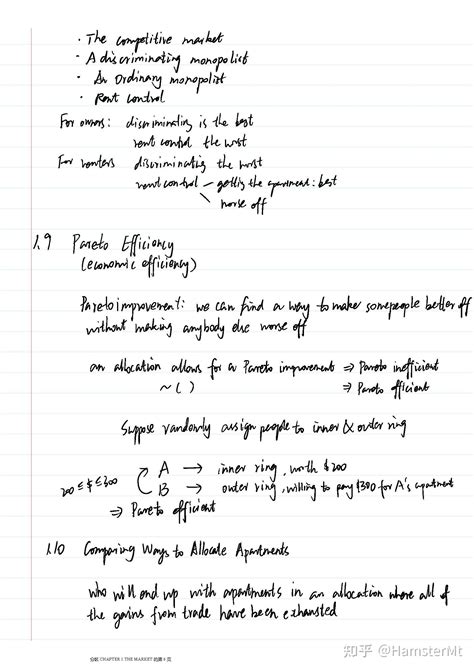 · The competitive market
· A discriminating monopolist
· An ordinary monopolist
· Rent control
For owners: discriminating is the best
rent control the worst
For renters discriminating the worst
rent control – getting the apartment: best
worse off
1.9 Pareto Efficiency
(economic efficiency)
Pareto improvement: we can find a way to make some people better off
without making anybody else worse off
an allocation allows for a Pareto improvement ⇒ Pareto inefficient
~ ( ) ⇒ Pareto efficient
Suppose randomly assign people to inner & outer ring
A → inner ring, worth $200
200 ≤ $ ≤ 300
B → outer ring, willing to pay $300 for A's apartment
⇒ Pareto efficient
1.10 Comparing Ways to Allocate Apartments
who will end up with apartments in an allocation where all of
the gains from trade have been exhausted
分区 CHAPTER 1 THE MARKET 的第 6 页
知乎 @HamsterMt